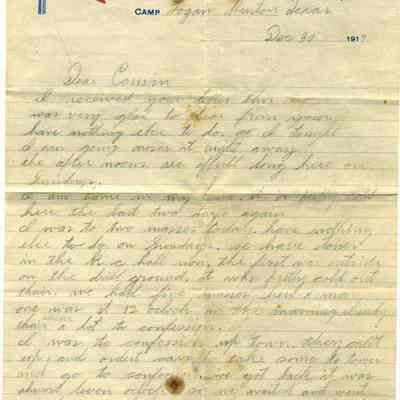 CAMP Logan Houston Texas
Dec 30 1917
Dear Cousin
I received your letter this
was very glad to hear from you
have nothing else to do. so I thought
I am going answer it right away.
the after noons are offull long here on
Sundays.
I am here in my it is pretty cold
here the last two days again
I was to two masses today, have nothing
else to do on Sundays. we have down
in the K c hall now, the first was outside
on the drill ground, it was pretty cold out
thair. we had five masses here
one was at 12 oclock in the
thair a lot to confession.
I was to confession up town. then
up, and to take some to town
and go to we got back it was
almost leven oclock so we waited and went